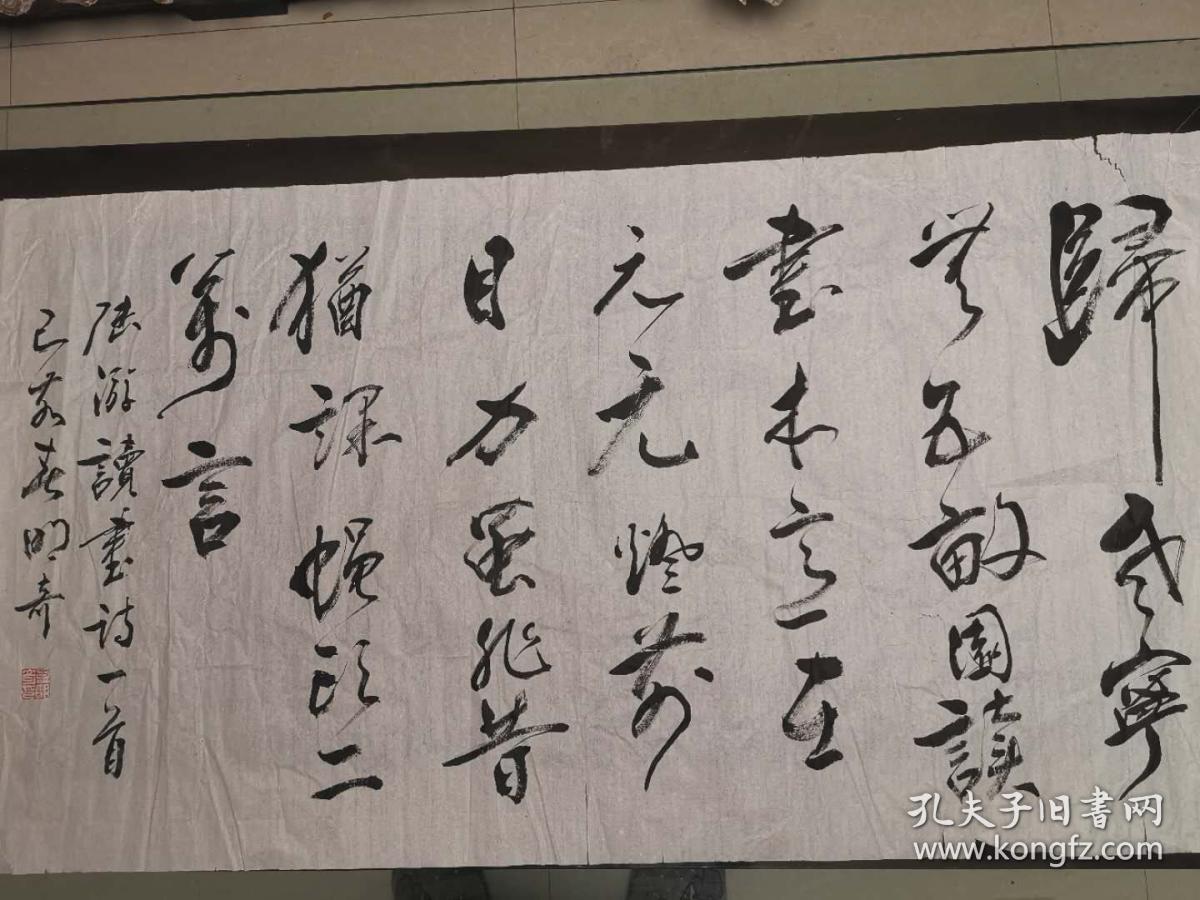 歸老寧
無五畝園讀
書本意在
元元燈前
目力雖非昔
猶課蠅頭二
萬言
陸游讀書詩一首
己亥春明奇
孔夫子旧书网
www.kongfz.com